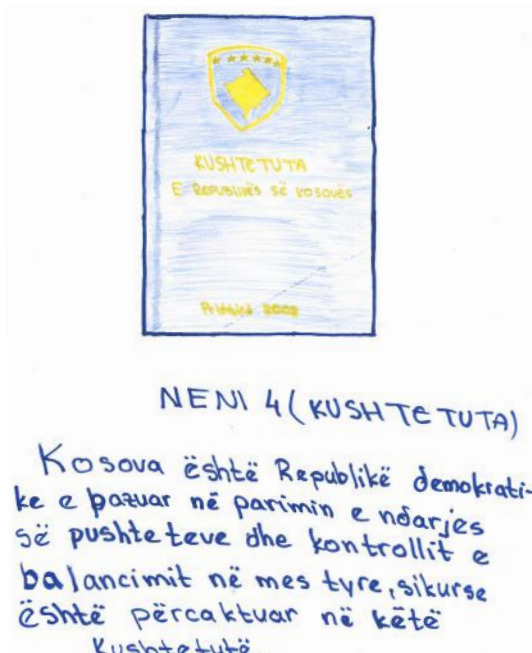 KUSHTETUTA
E REPUBLIKËS SË KOSOVËS
Prishtinë 2008
NENI 4 (KUSHTETUTA)
Kosova është Republikë demokrati-
ke e bazuar në parimin e ndarjes
së pushteteve dhe kontrollit e
balancimit në mes tyre, sikurse
është përcaktuar në këtë
Kushtetutë.